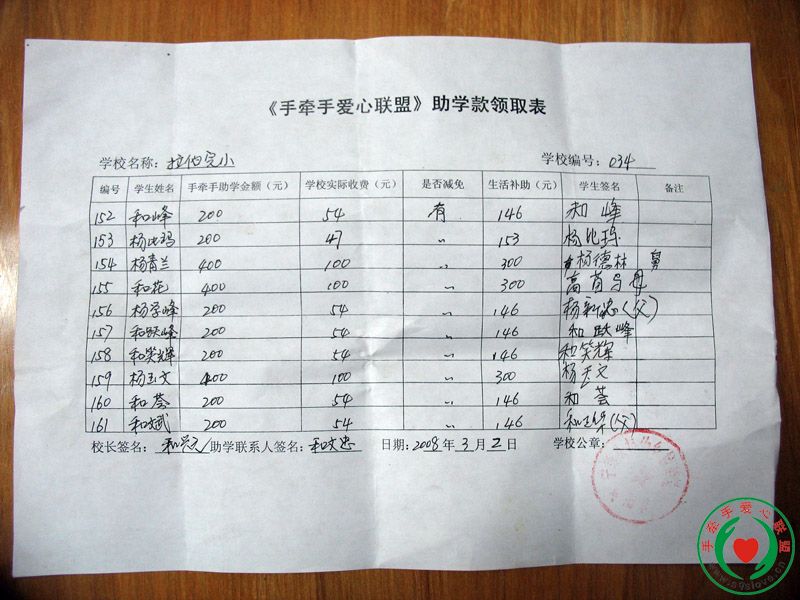 《手牵手爱心联盟》助学款领取表
学校名称：拉伯完小 学校编号：034
编号 学生姓名 手牵手助学金额（元） 学校实际收费（元） 是否减免 生活补助（元） 学生签名 备注
152 和峰 200 54 有 146 和峰
153 杨比玛 200 47 〃 153 杨比玛
154 杨青兰 400 100 〃 300 杨德林 舅
155 和花 400 100 〃 300
156 杨学峰 200 54 〃 146 （父）
157 和跃峰 200 54 〃 146 和跃峰
158 和笑辉 200 54 〃 146 和笑辉
159 杨玉文 400 100 〃 300 杨玉文
160 和荟 200 54 〃 146 和荟
161 和斌 200 54 〃 146 （父）
校长签名： 助学联系人签名：和文忠 日期：2008年3月2日 学校公章：
手牵手爱心联盟